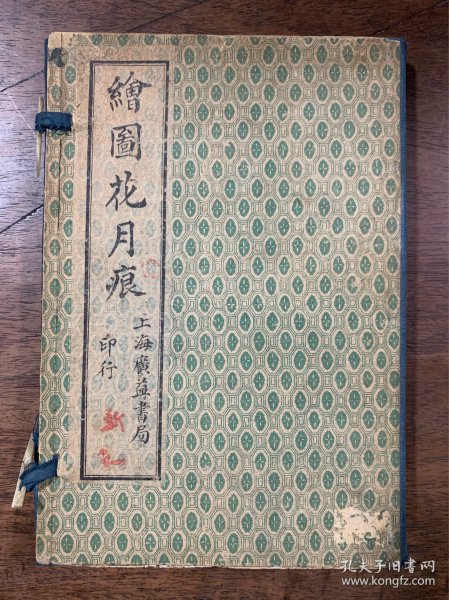 繪圖花月痕
上海廣益書局
印行
孔夫子旧书网
www.kongfz.com